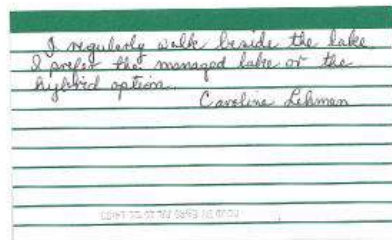 I regularly walk beside the lake
I prefer the managed lake or the
hybrid option.
Caroline Lehman